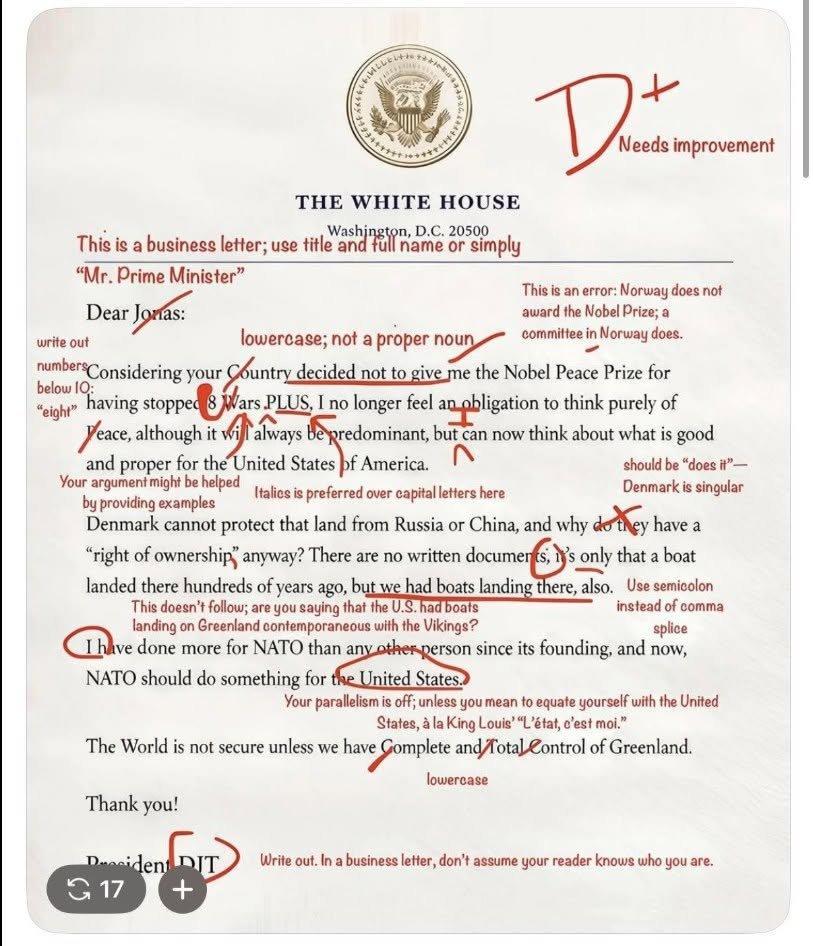 D+
Needs improvement
THE WHITE HOUSE
Washington, D.C. 20500
This is a business letter; use title and full name or simply
“Mr. Prime Minister”
Dear Jonas:
This is an error: Norway does not
award the Nobel Prize; a
committee in Norway does.
lowercase; not a proper noun
write out
numbers
below 10:
“eight”
Considering your Country decided not to give me the Nobel Peace Prize for
having stopped 8 Wars PLUS, I no longer feel an obligation to think purely of
I
Peace, although it will always be predominant, but can now think about what is good
and proper for the United States of America.
Your argument might be helped
by providing examples
Italics is preferred over capital letters here
should be “does it”—
Denmark is singular
Denmark cannot protect that land from Russia or China, and why do they have a
“right of ownership” anyway? There are no written documents, it’s only that a boat
landed there hundreds of years ago, but we had boats landing there, also.
Use semicolon
instead of comma
splice
This doesn’t follow; are you saying that the U.S. had boats
landing on Greenland contemporaneous with the Vikings?
I have done more for NATO than any other person since its founding, and now,
NATO should do something for the United States.
Your parallelism is off; unless you mean to equate yourself with the United
States, à la King Louis’ “L’état, c’est moi.”
The World is not secure unless we have Complete and Total Control of Greenland.
lowercase
Thank you!
President DJT
Write out. In a business letter, don’t assume your reader knows who you are.
17